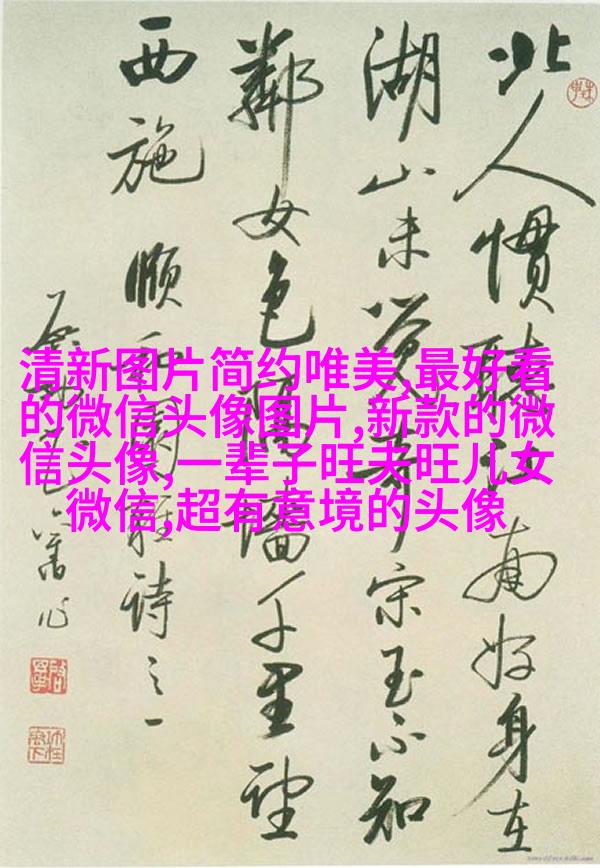 清新图片简约唯美,最好看
的微信头像图片,新款的微
信头像,一辈子旺夫旺儿女
微信,超有意境的头像
北人慣聽江南好身在
湖山未覺奇宋玉不知
鄰女色墻千里望
西施 頤和園雜詩之一
启功舊作